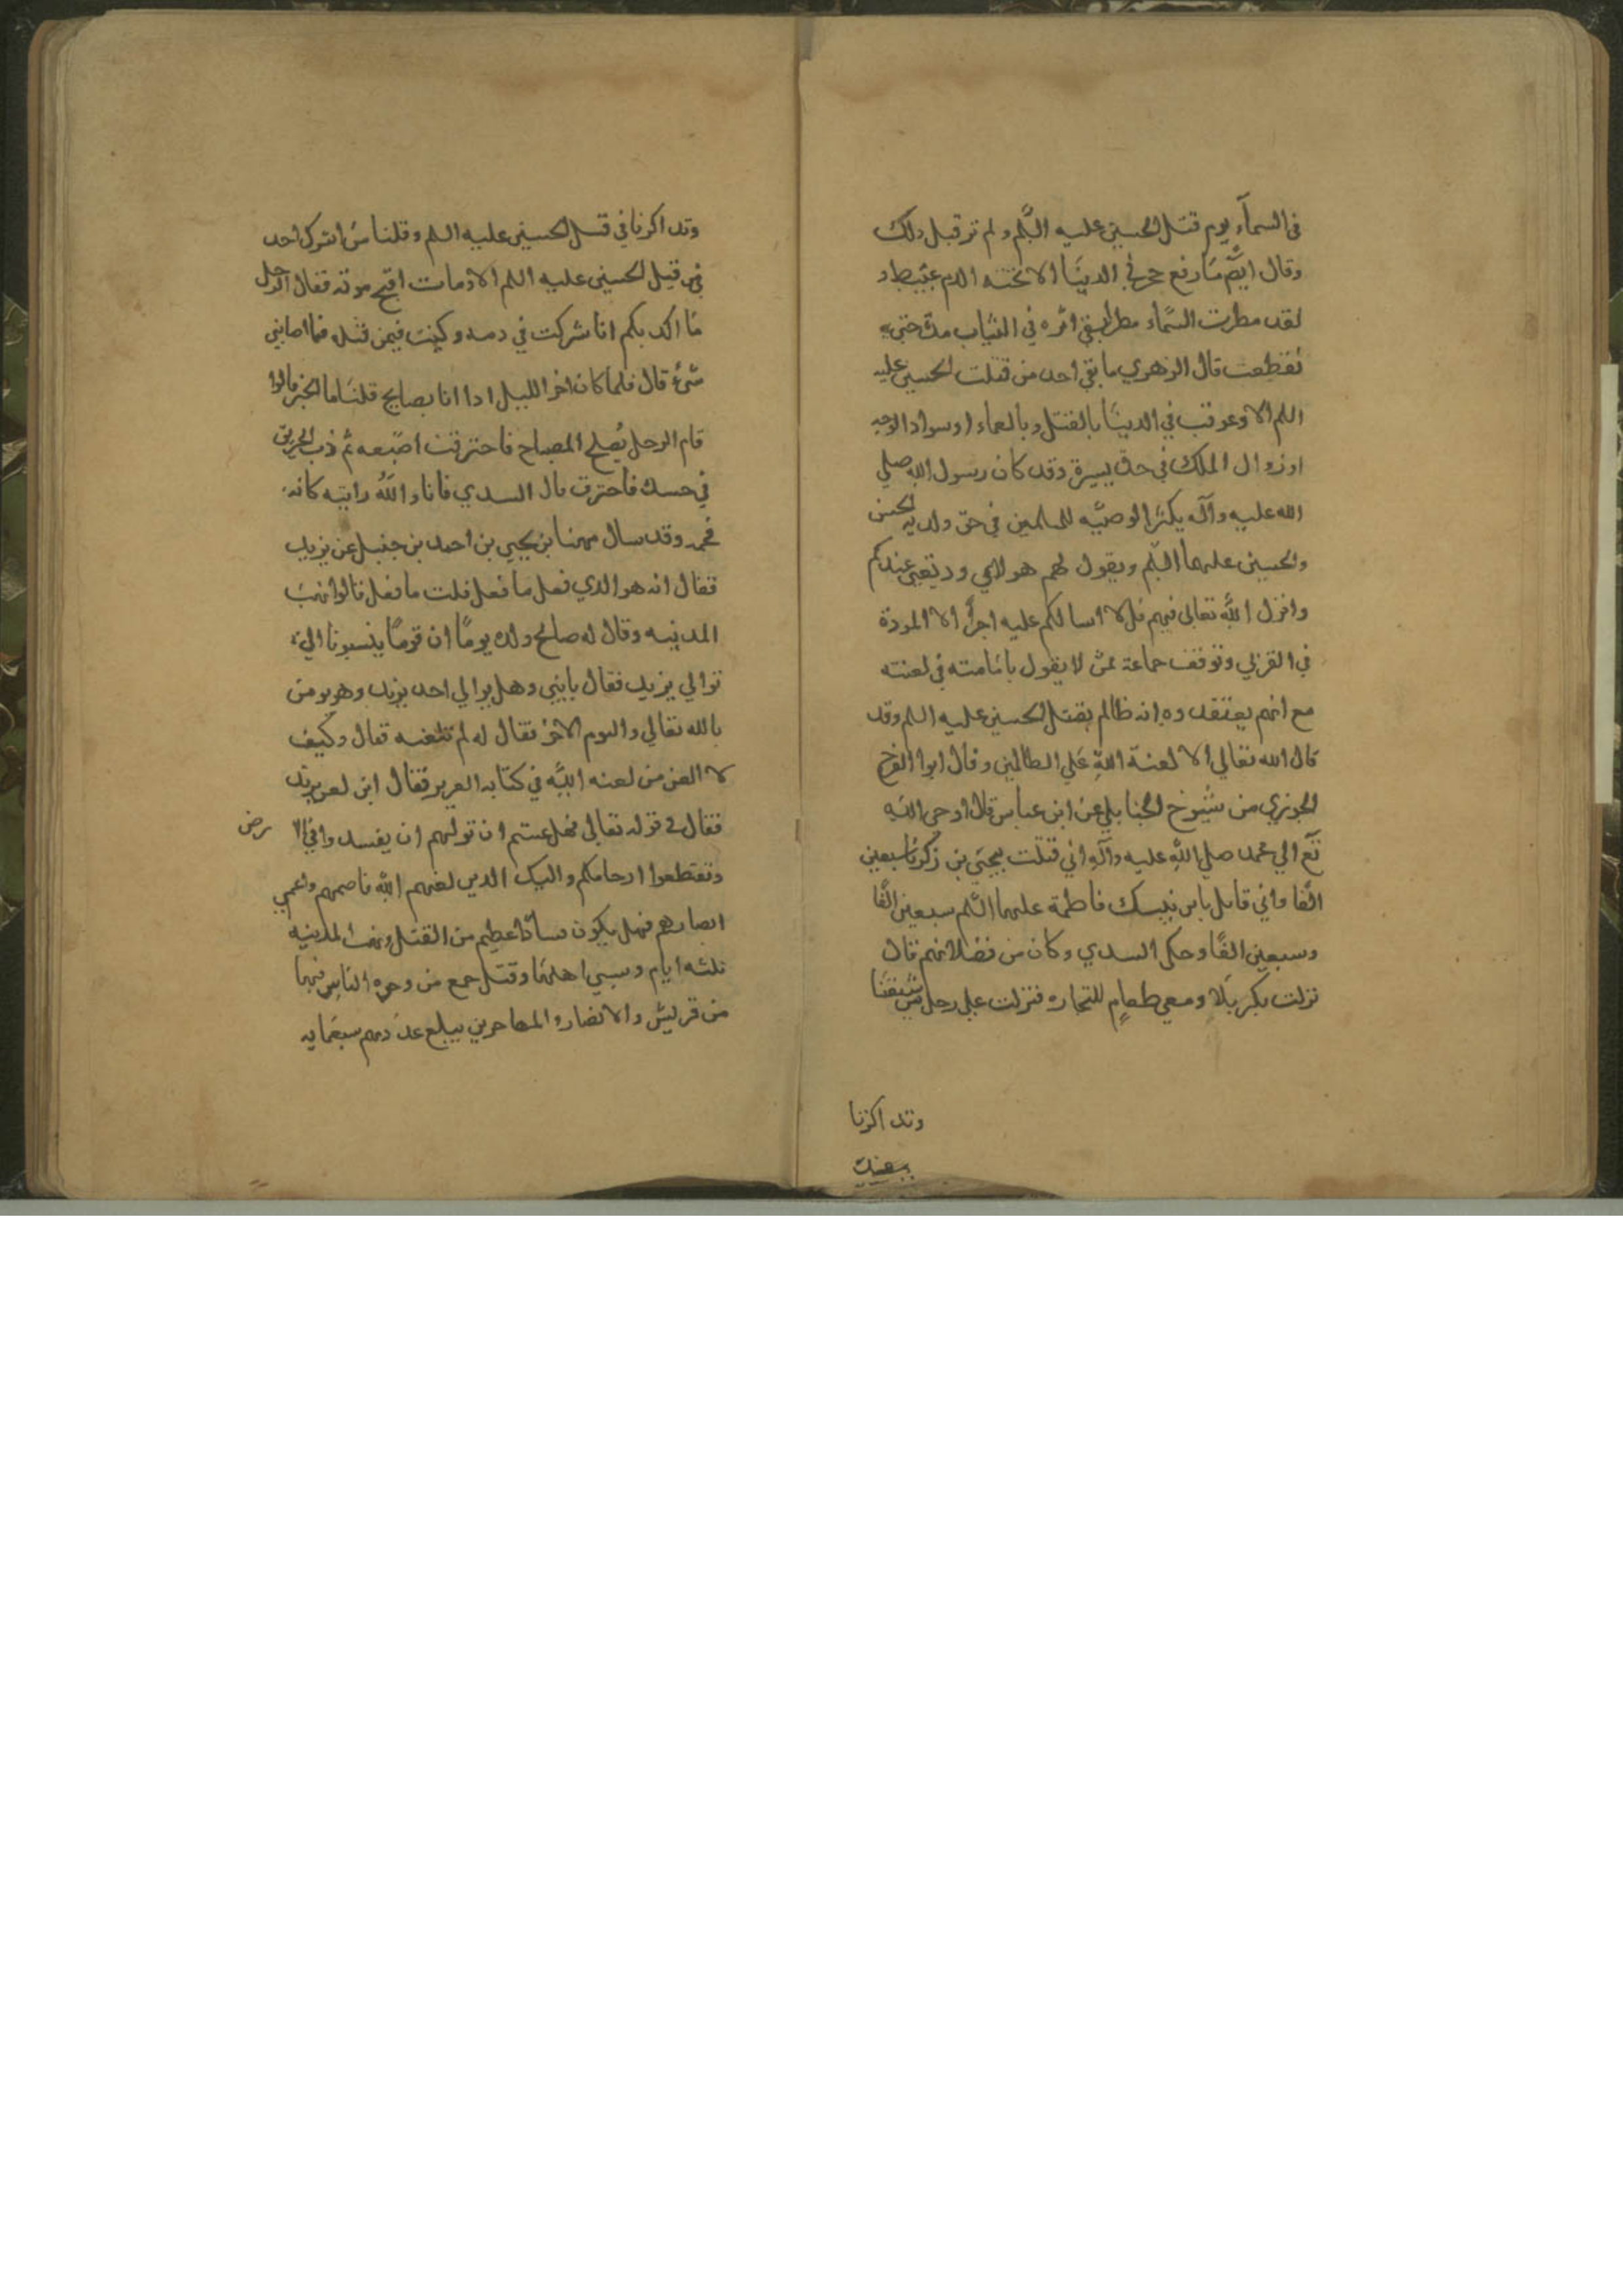 في السمآء يوم قتل الحسين عليه السّلم ولم تر قبل ذلك
وقال ايضًا ما رفع حجر في الدنيا الا تحته الدم عبيط و
لقد مطرت السّماء مطرا بقي اثره في الثياب مدة حتي
تقطعت قال الزهري ما بقي احد من قتلت الحسين عليه
السلم الا وعوقب في الدنيا بالقتل وبالعماء او سواد الوجه
او زوال الملك في مدة يسيرة وقد كان رسول الله صلي
الله عليه وآله يكثر الوصيّه للمسلمين في حق ولديه الحسن
والحسين عليهما السّلم ويقول لهم هولاي وديعتي عندكم
وانزل الله تعالى فيهم قل لا اسالكم عليه اجرًا الا المودة
في القربي وتوقف جماعة ممن لا يقول بامامته في لعنته
مع انهم يعتقدوه انه ظالم بقتل الحسين عليه السلم وقد
قال الله تعالي الا لعنة اللهِ عَلي الظالمين وقال ابوا الفرج
الجوزي من شيوخ الحنابلي عن ابن عباس قال اوحى الله
تع الي محمد صلي الله عليه وآلهِ اني قتلت بيحيى بن زكريا سبعين
الفًا واني قاتل بابن بنتك فاطمة عليهما السّلم سبعين الفًا
وسبعين الفًا وحكى السدي وكان من فضلائهم قال
نزلت بكربلا ومعي طعام للتجاره فنزلت علي رجل
وتداكرنا
وتداكرنا في قتل الحسين عليه السلم وقلنا ما اشرك احد
في قتل الحسين عليه السلم الا ومات اقبح موته فقال الرجل
ما اكدبكم انا شركت في دمه وكنت فيمن قتله فما اصابني
شيء قال فلما كان اخر الليل ادا انا بصايح قلنا ما الخبر قالوا
قام الرجل يُصلح المصباح فاحترقت اصبعه ثم دب الحريق
في جسده فاحترق قال السدي فانا والله رايته كانه
فحمه وقد سال مهنا بن يحيي بن احمد بن حنبل عن يزيد
فقال انه هو الدي فعل ما فعل قلت ما فعل قالوا نهب
المدينه وقال له صالح ولده يومًا ان قومًا ينسبونا الي
توالي يزيد فقال يابني وهل يوالي احد يزيد وهو يومن
بالله تعالي واليوم الاخر فقال له لم تلعنه فقال وكيف
لا العن من لعنه الله في كتابه العزيز فقال اين لعن يزيد
فقال في قوله تعالى فهل عستم ان توليتم ان يفسدوا في الا رض
وتقطعوا ارحامكم واليك الدين لعنهم الله فاصمهم واعمي
ابصارهم فهل يكون فسادًا اعظم من القتل ونهب المدينه
ثلثه ايام وسبي اهلها وقتل جمع من وجوه الناس فيها
من قريش والانصار والمهاجرين يبلغ عددهم سبعمايه